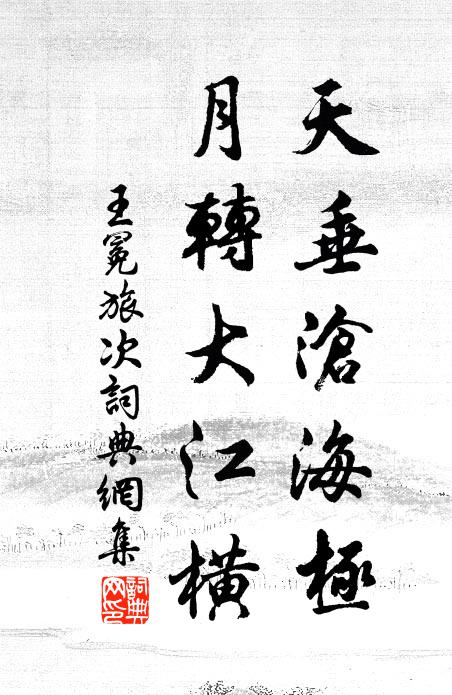 天垂滄海極
月轉大江橫
王冕旅次詞典網集
詞典网印